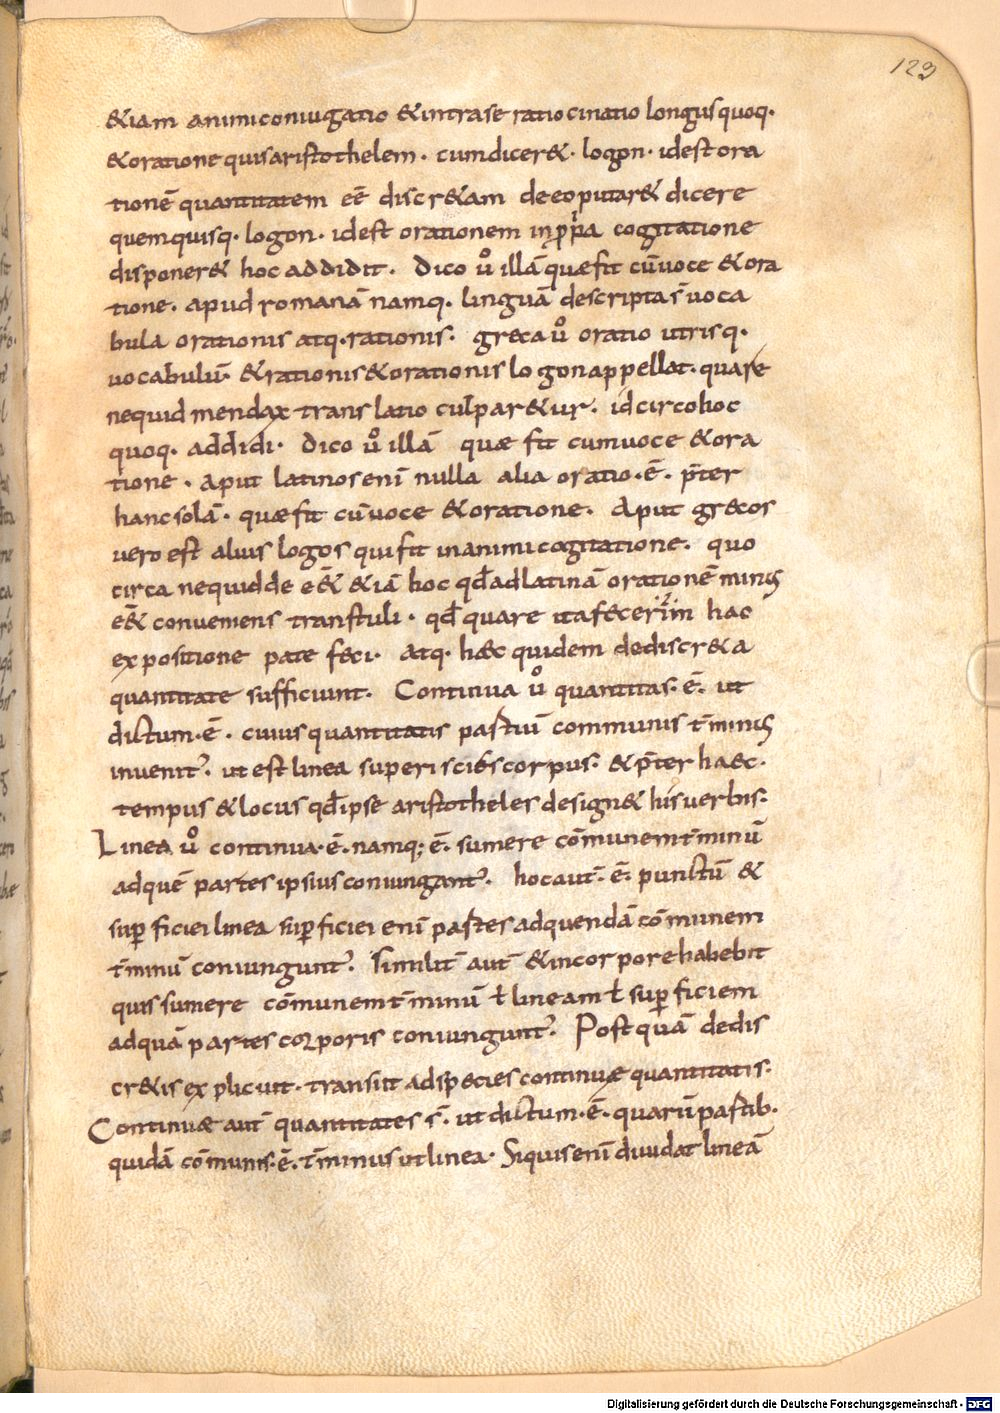 123
&iam animi coniugatio & intra se ratiocinatio longus quoq·
& oratione quis aristothelem· cum dicer&· logon· id est ora
tionē quantitatem eē discr&am de eo putar& dicere
quem quisq· logon· id est orationem in ppa cogitatione
disponer& hoc addidit· Dico uͦ illā quæ fit cū uoce & ora
tione· apud romanā namq· linguā descripta s̄ uoca
bula orationis atq· rationis· greca uͦ oratio utrisq·
uocabulū· & rationis & orationis logon appellat· quare
nequid mendax translatio culpar&ur· idcirco hoc
quoq· addidi· Dico uͦ illā quæ fit cum uoce & ora
tione· aput latinos enī nulla alia oratio·ē· p̄ter
hanc solā· quæ fit cū uoce & oratione· Aput grecos
uero est alius logos qui fit in animi cogitatione· quo
circa nequid de eē& &iā hoc qđ ad latinā orationē minus
eē& conueniens transtuli· qđ quare ita fecerim hac
expositione pate feci· atq· hæc quidem de discr&a
quantitate sufficiunt· Continua uͦ quantitas·ē· ut
dictum·ē· cuius quantitatis partiū communis t̄minus
inuenit᾿· ut est linea superiscies corpus· & p̄ter haec·
tempus & locus qđ ipse aristotheles design& his uerbis·
Linea uͦ continua·ē·namq;·ē· sumere cōmunem t̄minū
ad quē partes ipsius coniungant᾿· hoc aut̄·ē· punctū &
suꝑficiei linea suꝑficiei enī partes ad quendā cōmunem
t̄minū coniungunt᾿· Similit̄ aut̄ & in corpore habebit
quis sumere cōmunem t̄minū ł lineam ł suꝑficiem
ad quā partes corporis coniungunt᾿· Postquā de dis
cr&is explicuit· transiit ad species continuæ quantitatis·
Continuæ aut̄ quantitates s̄· ut dictum·ē· quarū partib·
quidā cōmunis·ē· t̄minus ut linea· Si quis enī diuidat lineā
Digitalisierung gefördert durch die Deutsche Forschungsgemeinschaft - DFG